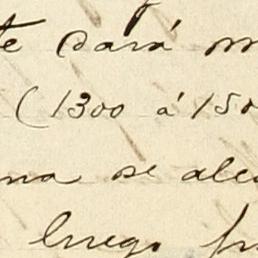 te dará m
(1300 á 150
na se alca
luego fu